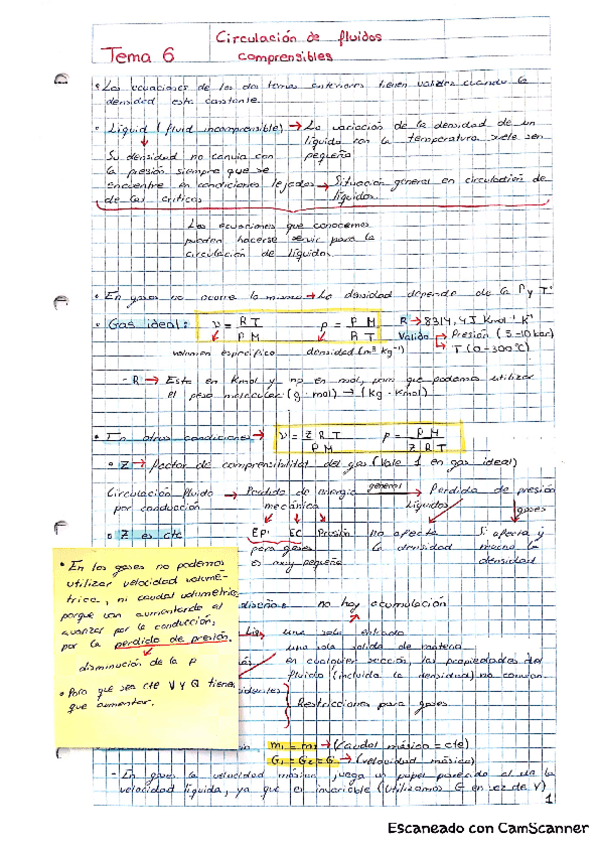 Circulación de fluidos
Tema 6 comprensibles
• Las ecuaciones de los dos temas anteriores tienen validez cuando la
densidad esta constante.
• Liquid (fluid incomprensible) → La variación de la densidad de un
líquido con la temperatura suele ser
Su densidad no canvia con pequeña
la presión siempre que se
encuentre en condiciones lejados → Situación general en circulación de
de las críticas líquidos.
Las ecuaciones que conocemos
pueden hacerse servir para la
circulación de líquidos.
• En gases no ocurre lo mismo → La densidad depende de la P y T
• Gas ideal: ν = R T / P M ρ = P M / R T R → 8314,4 J Kmol⁻¹ K⁻¹
Válido → Presión (5-10 bar)
volumen específico densidad (m³ kg⁻¹) → T (0-300ºC)
- R → Esta en Kmol y no en mol, para que podamos utilizar
el peso molecular (g · mol) → (kg · Kmol)
• En otras condiciones → ν = Z R T / P M ρ = P M / Z R T
• Z → Factor de comprensibilitat del gas (Vale 1 en gas ideal)
Circulación fluido → Perdida de energía general → Perdida de presión
por conducción mecánica líquidos gases
• Z es cte EP EC Presión no afecta Si afecta y
para gases la densidad mucho la
es muy pequeña densidad
• En los gases no podemos
utilizar velocidad volume-
trica, ni caudal volumetrico
porque van aumentando al
avanzar por la conducción,
por la perdida de presión.
disminución de la ρ
• Para que sea cte V y Q tienen
que aumentar.
diseño: no hay acumulación
una sola entrada
una sola salida de materia
en cualquier sección, las propiedades del
fluido (incluida la densidad) no cambian.
Restricciones para gases
m₁ = m₂ → (caudal másico = cte)
G₁ = G₂ = G → (velocidad másica)
- En gases la velocidad másica juega un papel parecido al de la
velocidad líquida, ya que es invariable (Utilizamos G en vez de V)
1
Escaneado con CamScanner